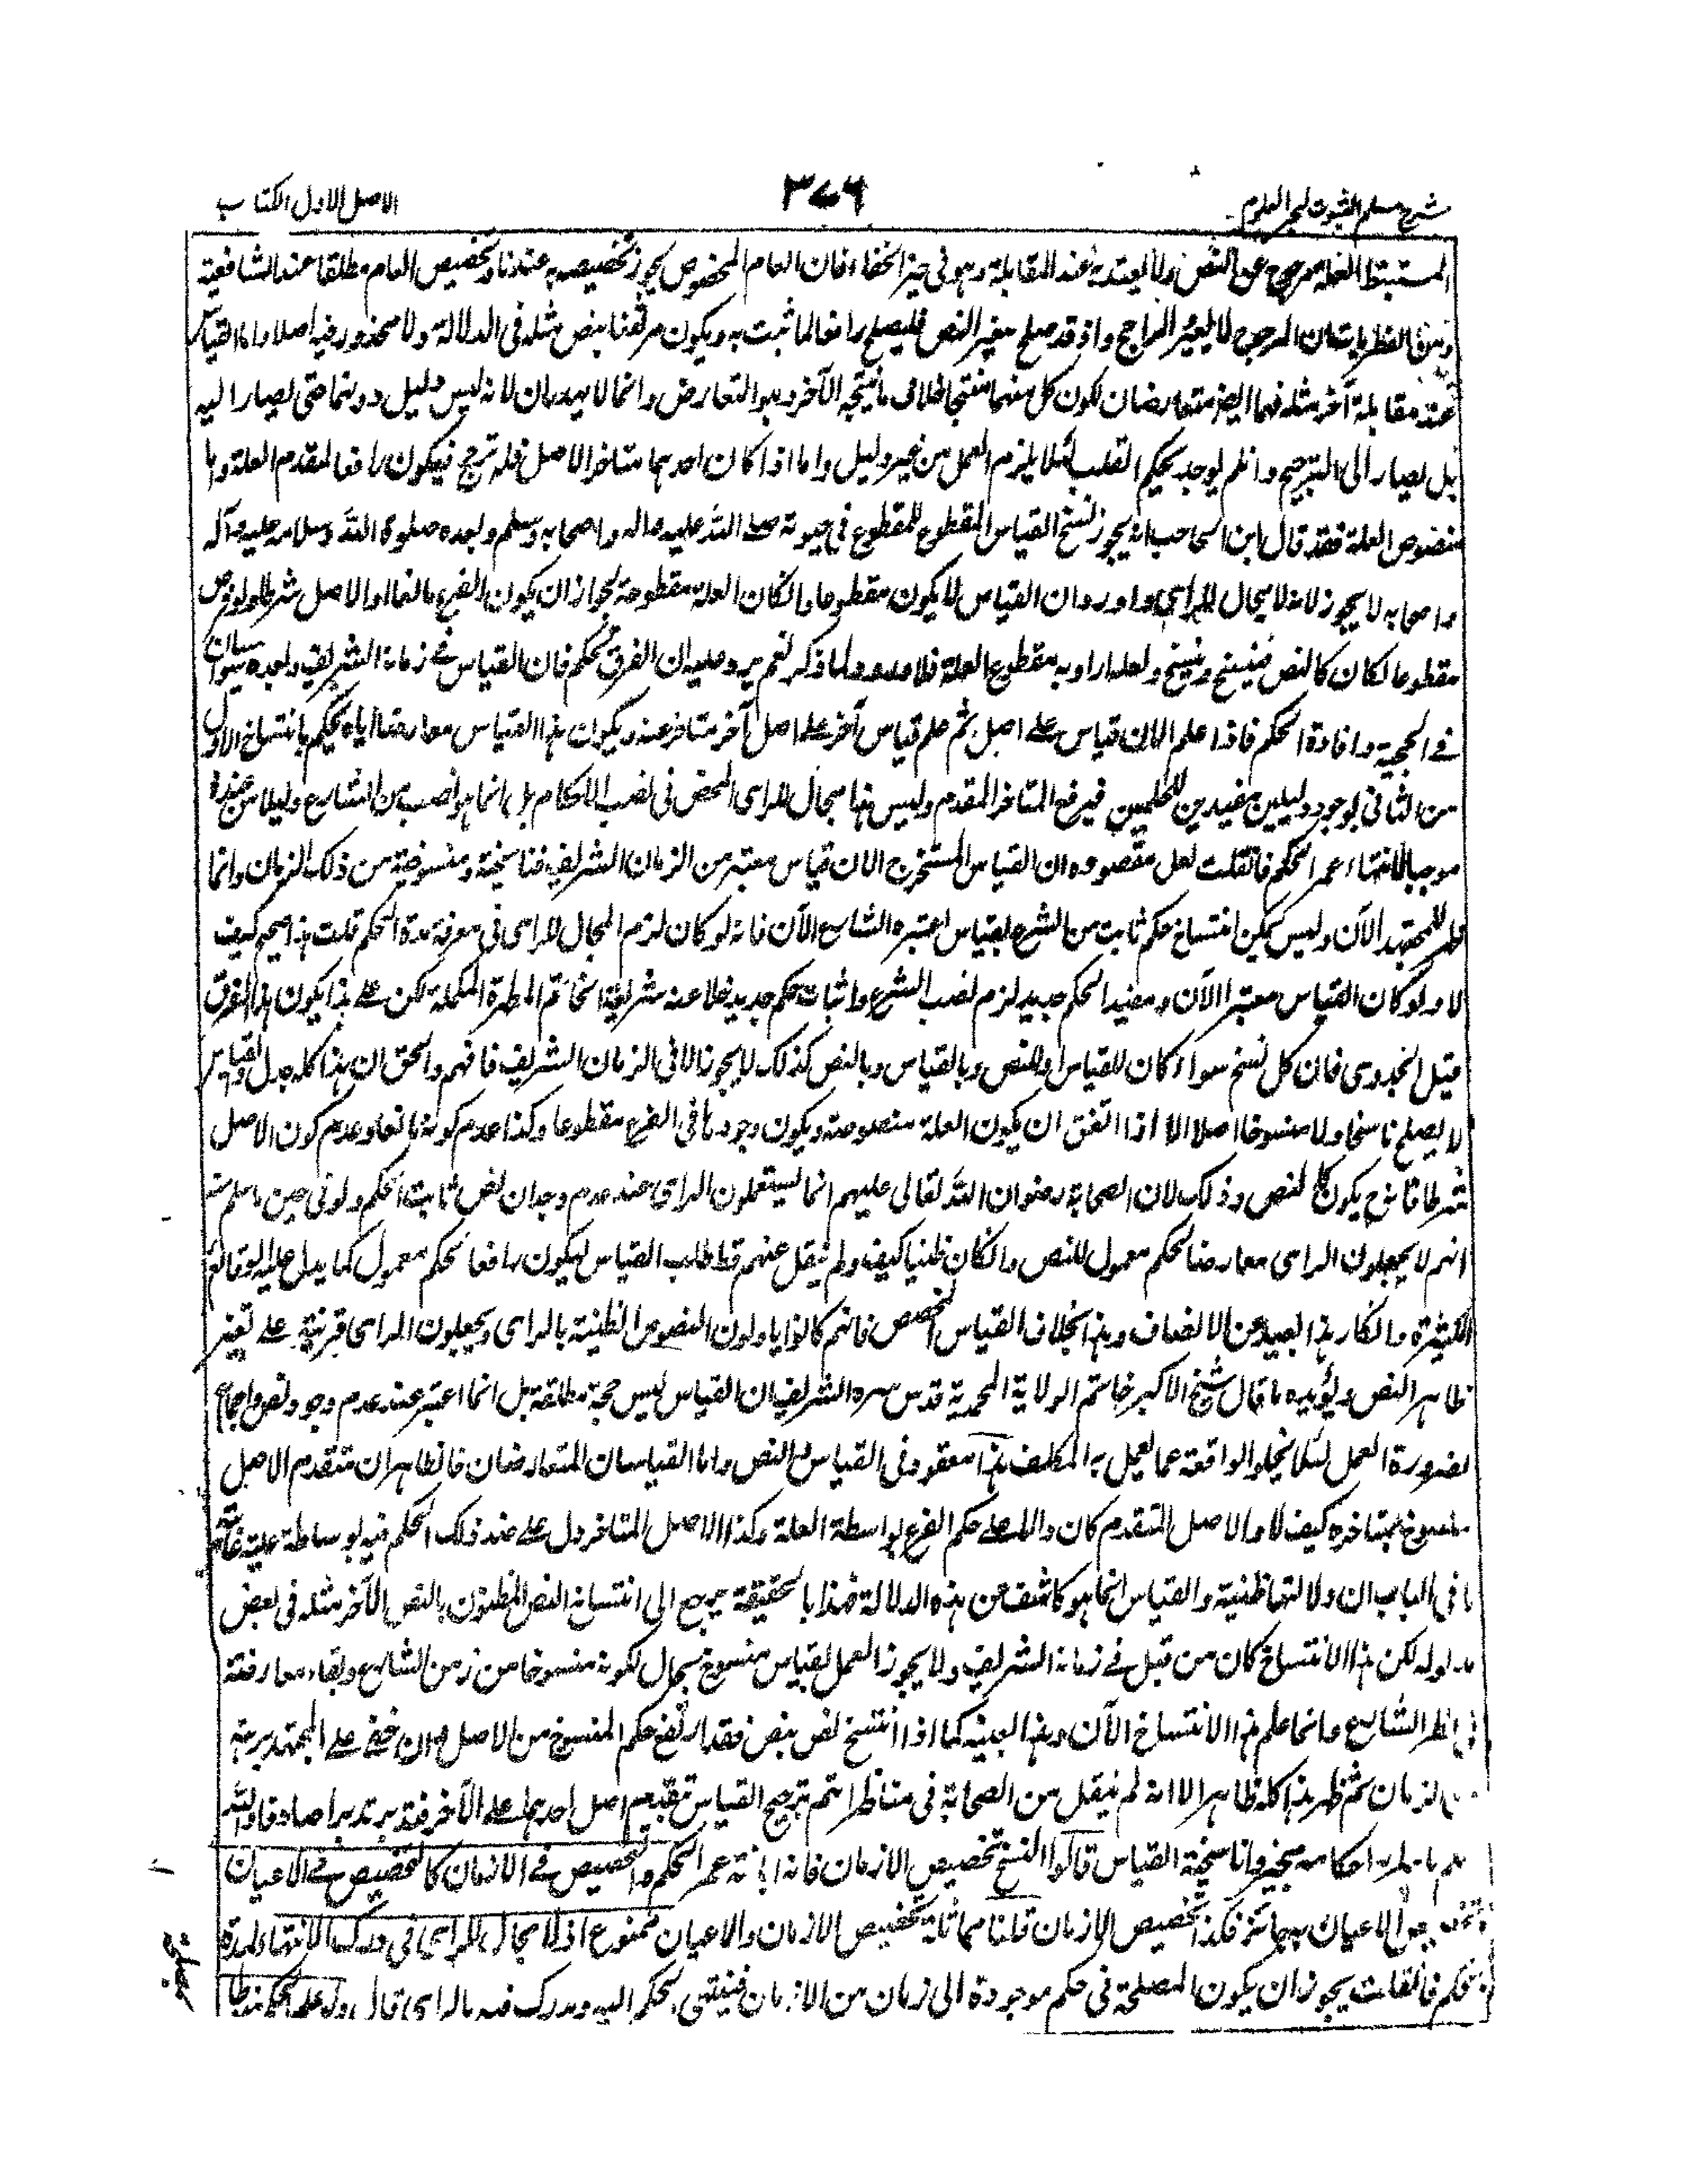 شرح مسلم الثبوت لبحر العلوم
٣٧٦
الاصل الاول الكتاب
المستنبط العلة مرجوح عن النص ولا يعتد به عند المقابلة وهو فى حيز الخفاء فان العام المخصوص يجوز تخصيصه به عندنا وتخصيص العام مطلقا عند الشافعية
ومن الظريات ان المرجوح لا يغير الراجح واذ قد صلح مغير النص فليصلح رافعا لما ثبت به ويكون مرتفعا بنص مثله فى الدلالة ولا محذور فيه اصلا واما القياس
عند مقابلة آخر مثله فهما ايضا متعارضان لكون كل منهما منتجا خلاف ما ينتجه الآخر وهو التعارض وانما لا يهدران لانه ليس دليل دونهما حتى يصار اليه
بل يصار الى الترجيح وان لم يوجد يحكم القلب لئلا يلزم العمل من غير دليل واما اذا كان احدهما متاخر الاصل فله ترجح فيكون رافعا لمقدم العلة واما
منصوص العلة فقد قال ابن الحاجب انه يجوز نسخ القياس المقطوع للمقطوع فى حيوته صلے الله عليه واله واصحابه وسلم وبعده صلوة الله وسلامه عليه وآله
واصحابه لا يجوز لانه لا مجال للراى واورد ان القياس لا يكون مقطوعا وان كان العلة مقطوعة لجواز ان يكون الفرع مانعا او الاصل شرطا ولو فرض
مقطوعا لكان كالنص فينسخ وينسخ ولعله اراد به مقطوع العلة فلا ورود لما ذكر نعم يرد عليه ان الفرق تحكم فان القياس فے زمانه الشريف وبعده سيان
فے الحجية وافادة الحكم فاذا علم الان قياس علے اصل ثم علم قياس آخر علے اصل آخر متاخر عنه ويكون هذا القياس معارضا اياه يحكم بانتساخ الاول
من الثانى لوجود دليلين مفيدين للحكمين فيرفع المتاخر المقدم وليس هذا مجال للراى المحض فى نصب الاحكام بل انما هو نصب من الشارع دليلا من عنده
موجبا لانتهاء عمر الحكم فان قلت لعل مقصوده ان القياس المستخرج الان قياس معتبر من الزمان الشريف فناسخية ومنسوخية من ذلك الزمان وانما
ظهر للمجتهد الآن وليس يمكن انتساخ حكم ثابت من الشرع بقياس اعتبره الشارع الآن فانه لو كان لزم المجال للراى فى معرفة مدة الحكم قلت هذا صحيح كيف
لا ولو كان القياس معتبرا الآن ومفيدا لحكم جديد لزم نصب الشرع واثبات حكم جديد خلا عنه شريعة الخاتم المطهرة المكملة لكن علے هذا يكون هذا الفرق
قليل الجدوى فان كل نسخ سواء كان للقياس او للنص وبالقياس وبالنص كذلك لا يجوز الا فى الزمان الشريف فافهم والحق ان هذا كله جدل والقياس
لا يصلح ناسخا ولا منسوخا اصلا الا اذا اتفق ان يكون العلة منصوصة ويكون وجودها فى الفرع مقطوعا وكذا عدم كونه مانعا وعدم كون الاصل
شرطا فانه ح يكون كالنص وذلك لان الصحابة رضوان الله تعالى عليهم انما يستعملون الراى عند عدم وجدان نص ثابت الحكم ولو فى حين ما علم منه
انهم لا يجعلون الراى معارضا لحكم معمول للنص وان كان ظنيا كيف ولم ينقل عنهم قط طلب القياس ليكون رافعا لحكم معمول كما يدل عليه الوقائع
الكثيرة وانكار هذا بعيد من الانصاف وهذا بخلاف القياس المخصص فانهم كانوا ياولون النصوص الظنية بالراى ويجعلون الراى قرينة علے تغير
ظاهر النص ويؤيده ما قال الشيخ الاكبر خاتم الولاية المحمدية قدس سره الشريف ان القياس ليس حجة مطلقة بل انما اعتبر عند عدم وجود نص واجماع
لضرورة العمل لئلا يخلو الواقعة عما يعمل به المكلف هذا مفقود فى القياس مع النص واما القياسان المتعارضان فالظاهر ان متقدم الاصل
منسوخ بمتاخره كيف لا والاصل المتقدم كان دالا علے حكم الفرع بواسطة العلة وكذا الاصل المتاخر دل علے ضد ذلك الحكم فيه بوساطة علته غاية
ما فى الباب ان دلالتها ظنية والقياس انما هو كاشف عن هذه الدلالة فهذا بالحقيقة يرجع الى انتساخ النص المظنون بالنص الآخر مثله فى بعض
مدلوله لكن هذا الانتساخ كان من قبل فے زمانه الشريف ولا يجوز العمل بقياس منسوخ بحال لكونه منسوخا من زمن الشارع وبقاء معارضته
فى نظر الشارع وانما علم هذا الانتساخ الآن وهذا بعينه كما اذا انتسخ نص بنص فقد ارتفع حكم المنسوخ من الاصل وان خفى علے المجتهد برهة
من الزمان ثم ظهر هذا كله ظاهر الا انه لم ينقل من الصحابة فى مناظراتهم ترجيح القياس بتقديم اصل احدهما علے الآخر فتدبر تدبرا صادقا والله
اعلم باحكامه مجيزو ناسخية القياس قالوا النسخ تخصيص الازمان فانه ابانة عمر الحكم والتخصيص فے الازمان كالتخصيص فے الاعيان
وتخصيص الاعيان به جائز فكذا تخصيص الازمان قلنا مماثلة تخصيص الازمان والاعيان ممنوع اذ لا مجال للراى فى درك الانتهاء لمدة
الحكم فان قلت يجوز ان يكون المصلحة فى حكم موجودة الى زمان من الازمان فينتهى الحكم اليه ويدرك فيه بالراى قال